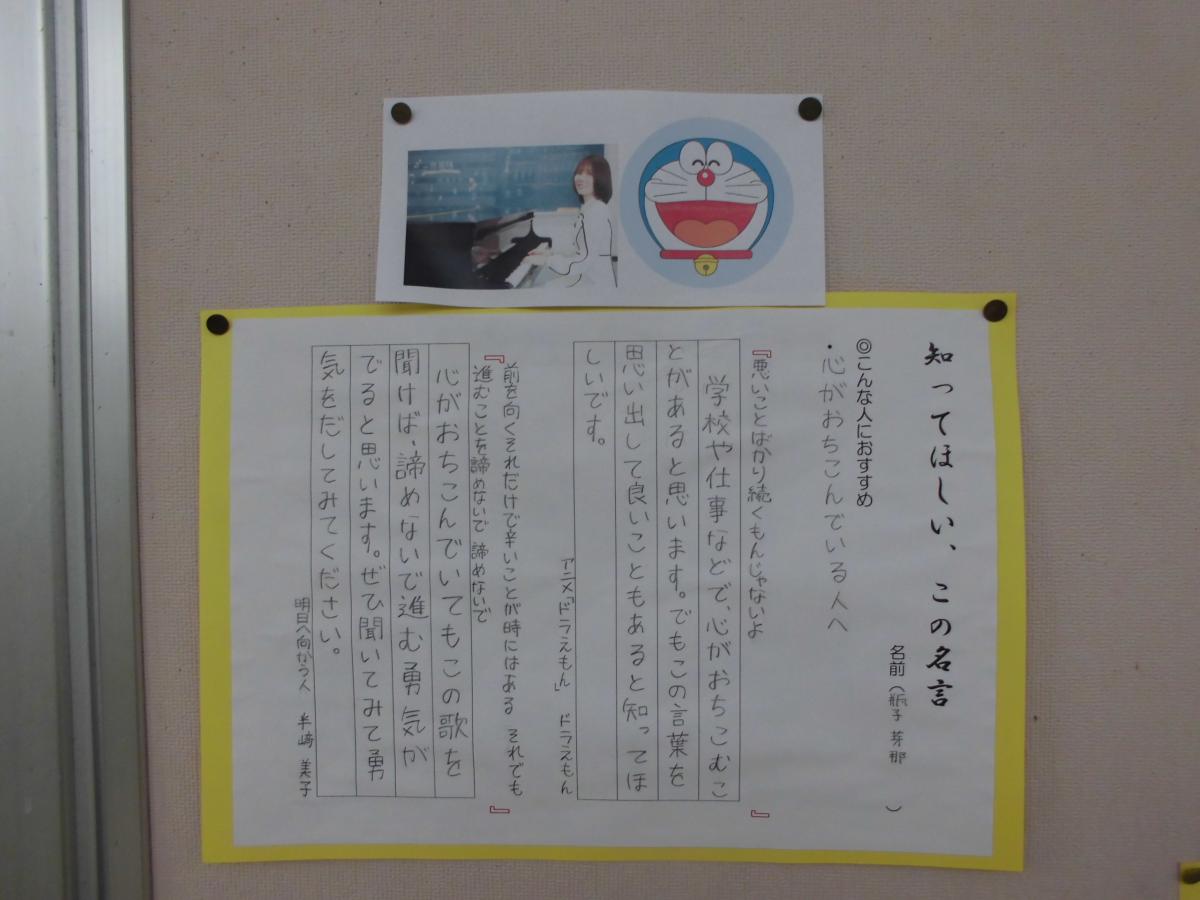 知ってほしい、この名言
名前（瓶子 芽那　）
◎こんな人におすすめ
・心がおちこんでいる人へ
『悪いことばかり続くもんじゃないよ』
学校や仕事などで、心がおちこむこ
とがあると思います。でもこの言葉を
思い出して良いこともあると知ってほ
しいです。
アニメ「ドラえもん」　ドラえもん
『前を向くそれだけで辛いことが時にはある　それでも
進むことを諦めないで 諦めないで』
心がおちこんでいてもこの歌を
聞けば、諦めないで進む勇気が
でると思います。ぜひ聞いてみて勇
気をだしてみてください。
明日へ向かう人　半﨑 美子